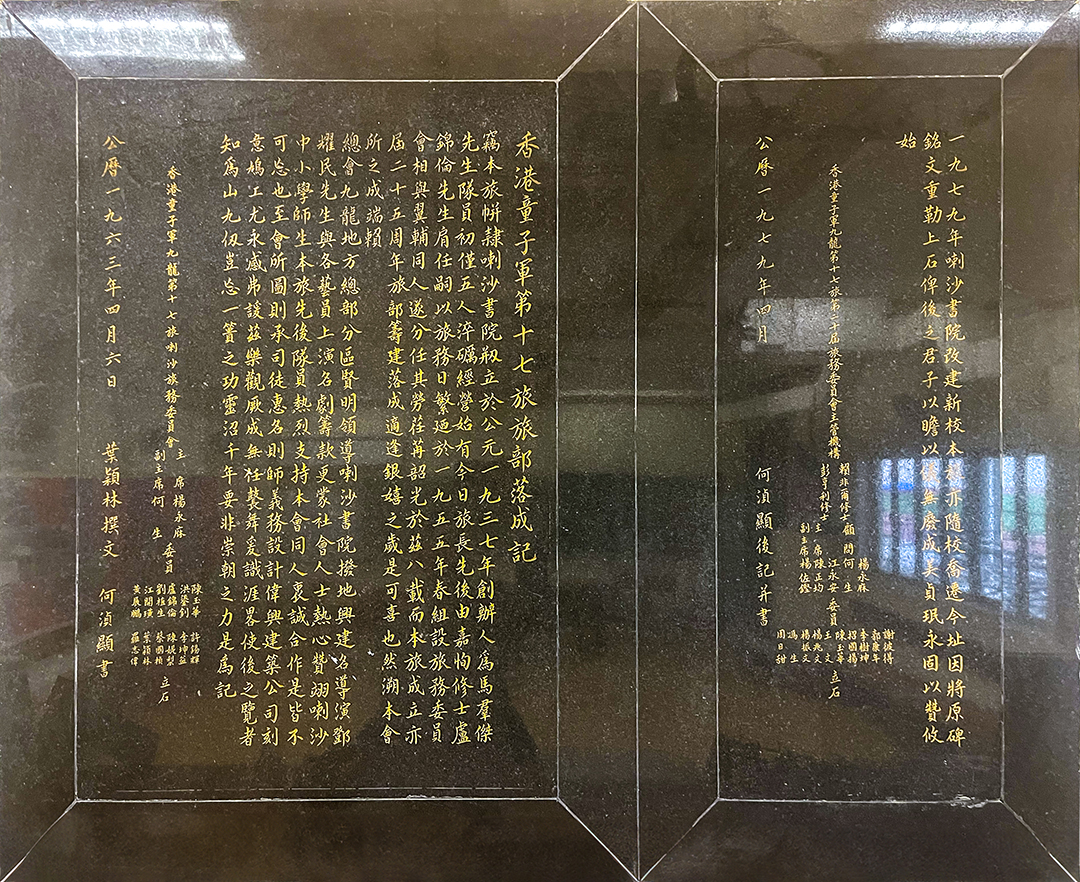 一九七九年喇沙書院改建新校本旅亦隨校喬遷今址因將原碑
銘文重勒上石俾後之君子以瞻以儀無廢成美貞珉永固以贊攸
始
香港童子軍九龍第十七旅第二十屆旅務委員會主管機構
賴非爾修士
彭亨利修士
顧問
楊永庥
何生
主席陳正均
副主席楊佐鐙
江永安
委員
謝彼得
郭康年
李樹坤
招國楊
陳玉華
王文
楊兆文
楊振文
馮生
周日新
立石
公曆一九七九年四月
何湞顯後記并書
香港童子軍第十七旅旅部落成記
竊本旅帡隸喇沙書院剏立於公元一九三七年創辦人爲馬羣傑
先生隊員初僅五人淬礪經營始有今日旅長先後由嘉恂修士盧
錦倫先生肩任嗣以旅務日繁廼於一九五五年春組設旅務委員
會相與翼輔同人遂分任其勞荏苒韶光於茲八載而本旅成立亦
屆二十五周年旅部籌建落成適逢銀嬉之歲是可喜也然溯本會
所之成端賴
總會九龍地方總部分區賢明領導喇沙書院撥地興建名導演鄧
耀民先生與各藝員上演名劇籌款更蒙社會人士熱心贊翊喇沙
中小學師生本旅先後隊員熱烈支持本會同人衷誠合作是皆不
可忘也至會所圖則承司徒惠名則師義務設計偉興建築公司刻
意鳩工尤永感弗諼茲樂觀厥成無任鼜舞爰識涯畧使後之覽者
知爲山九仞豈忘一簣之功靈沼千年要非崇朝之力是爲記
香港童子軍九龍第十七旅喇沙旅務委員會
主席楊永庥
副主席何生
委員
陳玉華
洪鋈釗
盧錦倫
劉植生
江閏璜
黃展鵬
許錫輝
李坤益
陳鎂棃
蔡國楨
葉潁林
羅志偉
立石
公曆一九六三年四月六日
葉潁林撰文
何湞顯書